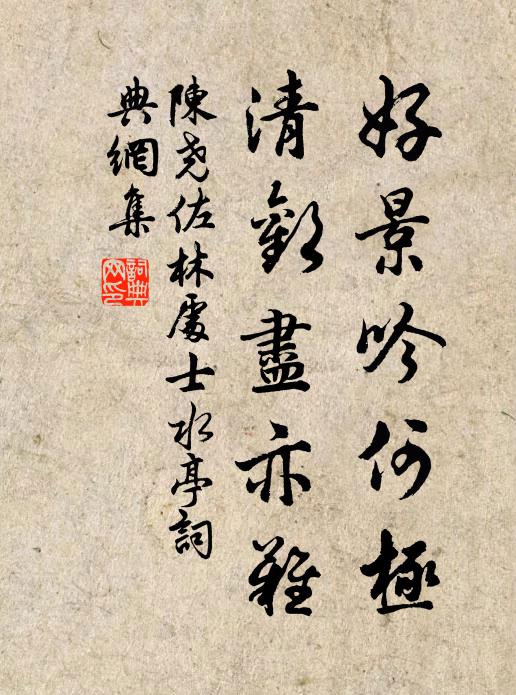 好景吟何極
清歡盡亦難
陳尧佐林處士水亭詞
典網集
詞典
网印